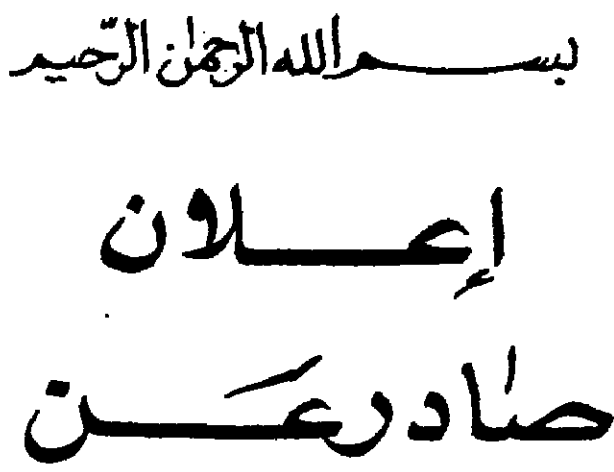 بسم الله الرحمن الرحيم
إعلان
صادر عن